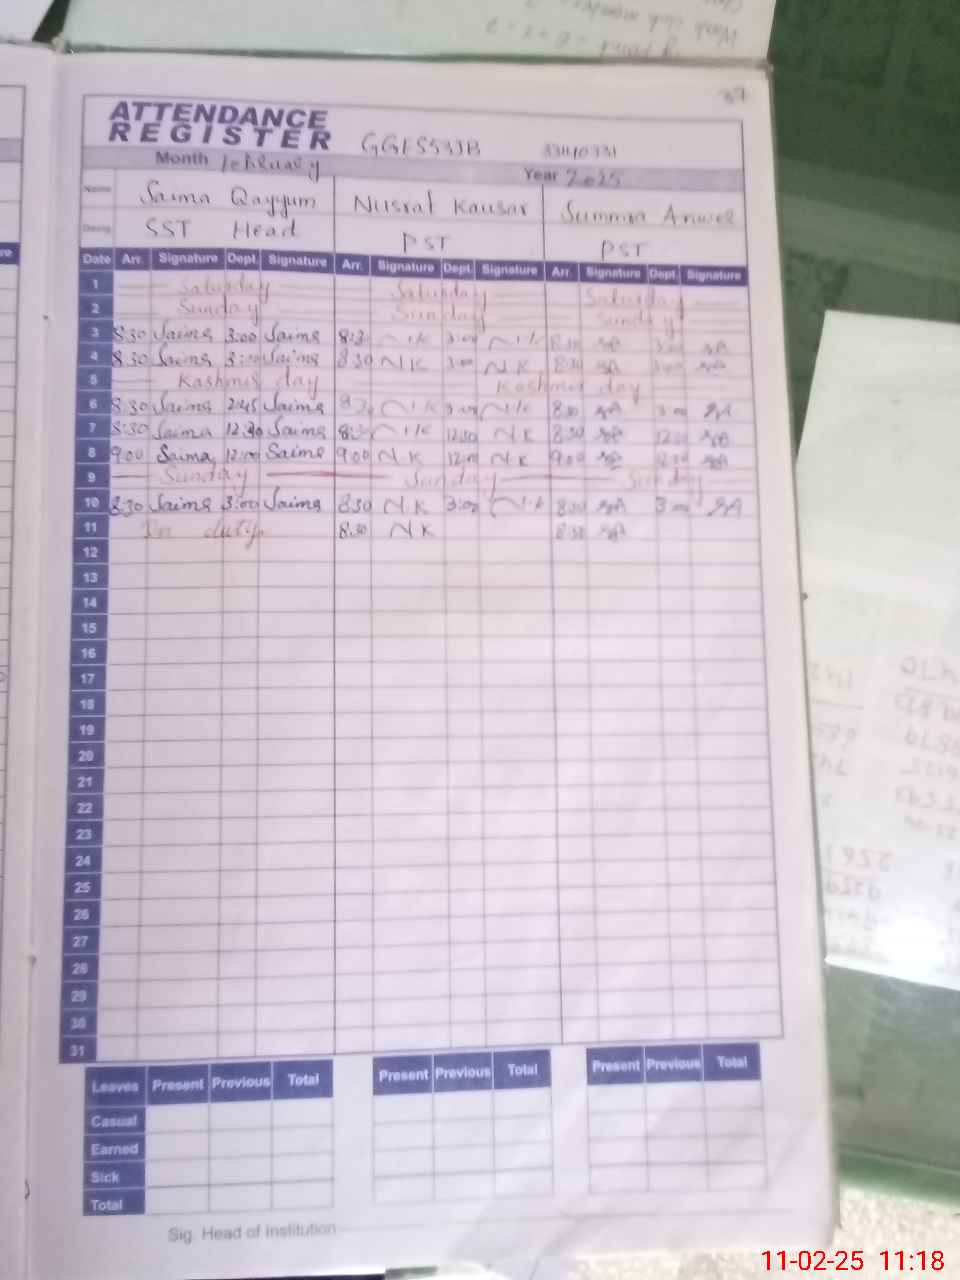 37
ATTENDANCE
REGISTER GGES53JB 33140331
Month February Year 2025
Name Saima Qayyum Nusrat Kausar Summra Anwer
Desig. SST Head PST PST
Date Arr. Signature Dept. Signature Arr. Signature Dept. Signature Arr. Signature Dept. Signature
1 Saturday Saturday Saturday
2 Sunday Sunday Sunday
3 8:30 Saima 3:00 Saima 8:30 NK 3:00 NK 8:30 SA 3:00 SA
4 8:30 Saima 3:00 Saima 830 NK 3:00 NK 8:30 SA 3:00 SA
5 Kashmir day Kashmir day
6 8:30 Saima 2:45 Saima 8:30 NK 3:00 NK 8:30 SA 3:00 SA
7 8:30 Saima 12:30 Saima 8:30 NK 12:30 NK 8:30 SA 12:30 SA
8 9:00 Saima 12:00 Saima 9:00 NK 12:00 NK 9:00 SA 12:00 SA
9 Sunday Sunday Sunday
10 8:30 Saima 3:00 Saima 8:30 NK 3:00 NK 8:30 SA 3:00 SA
11 On duty 8:30 NK 8:30 SA
12
13
14
15
16
17
18
19
20
21
22
23
24
25
26
27
28
29
30
31
Leaves Present Previous Total Present Previous Total Present Previous Total
Casual
Earned
Sick
Total
Sig. Head of Institution
11-02-25 11:18